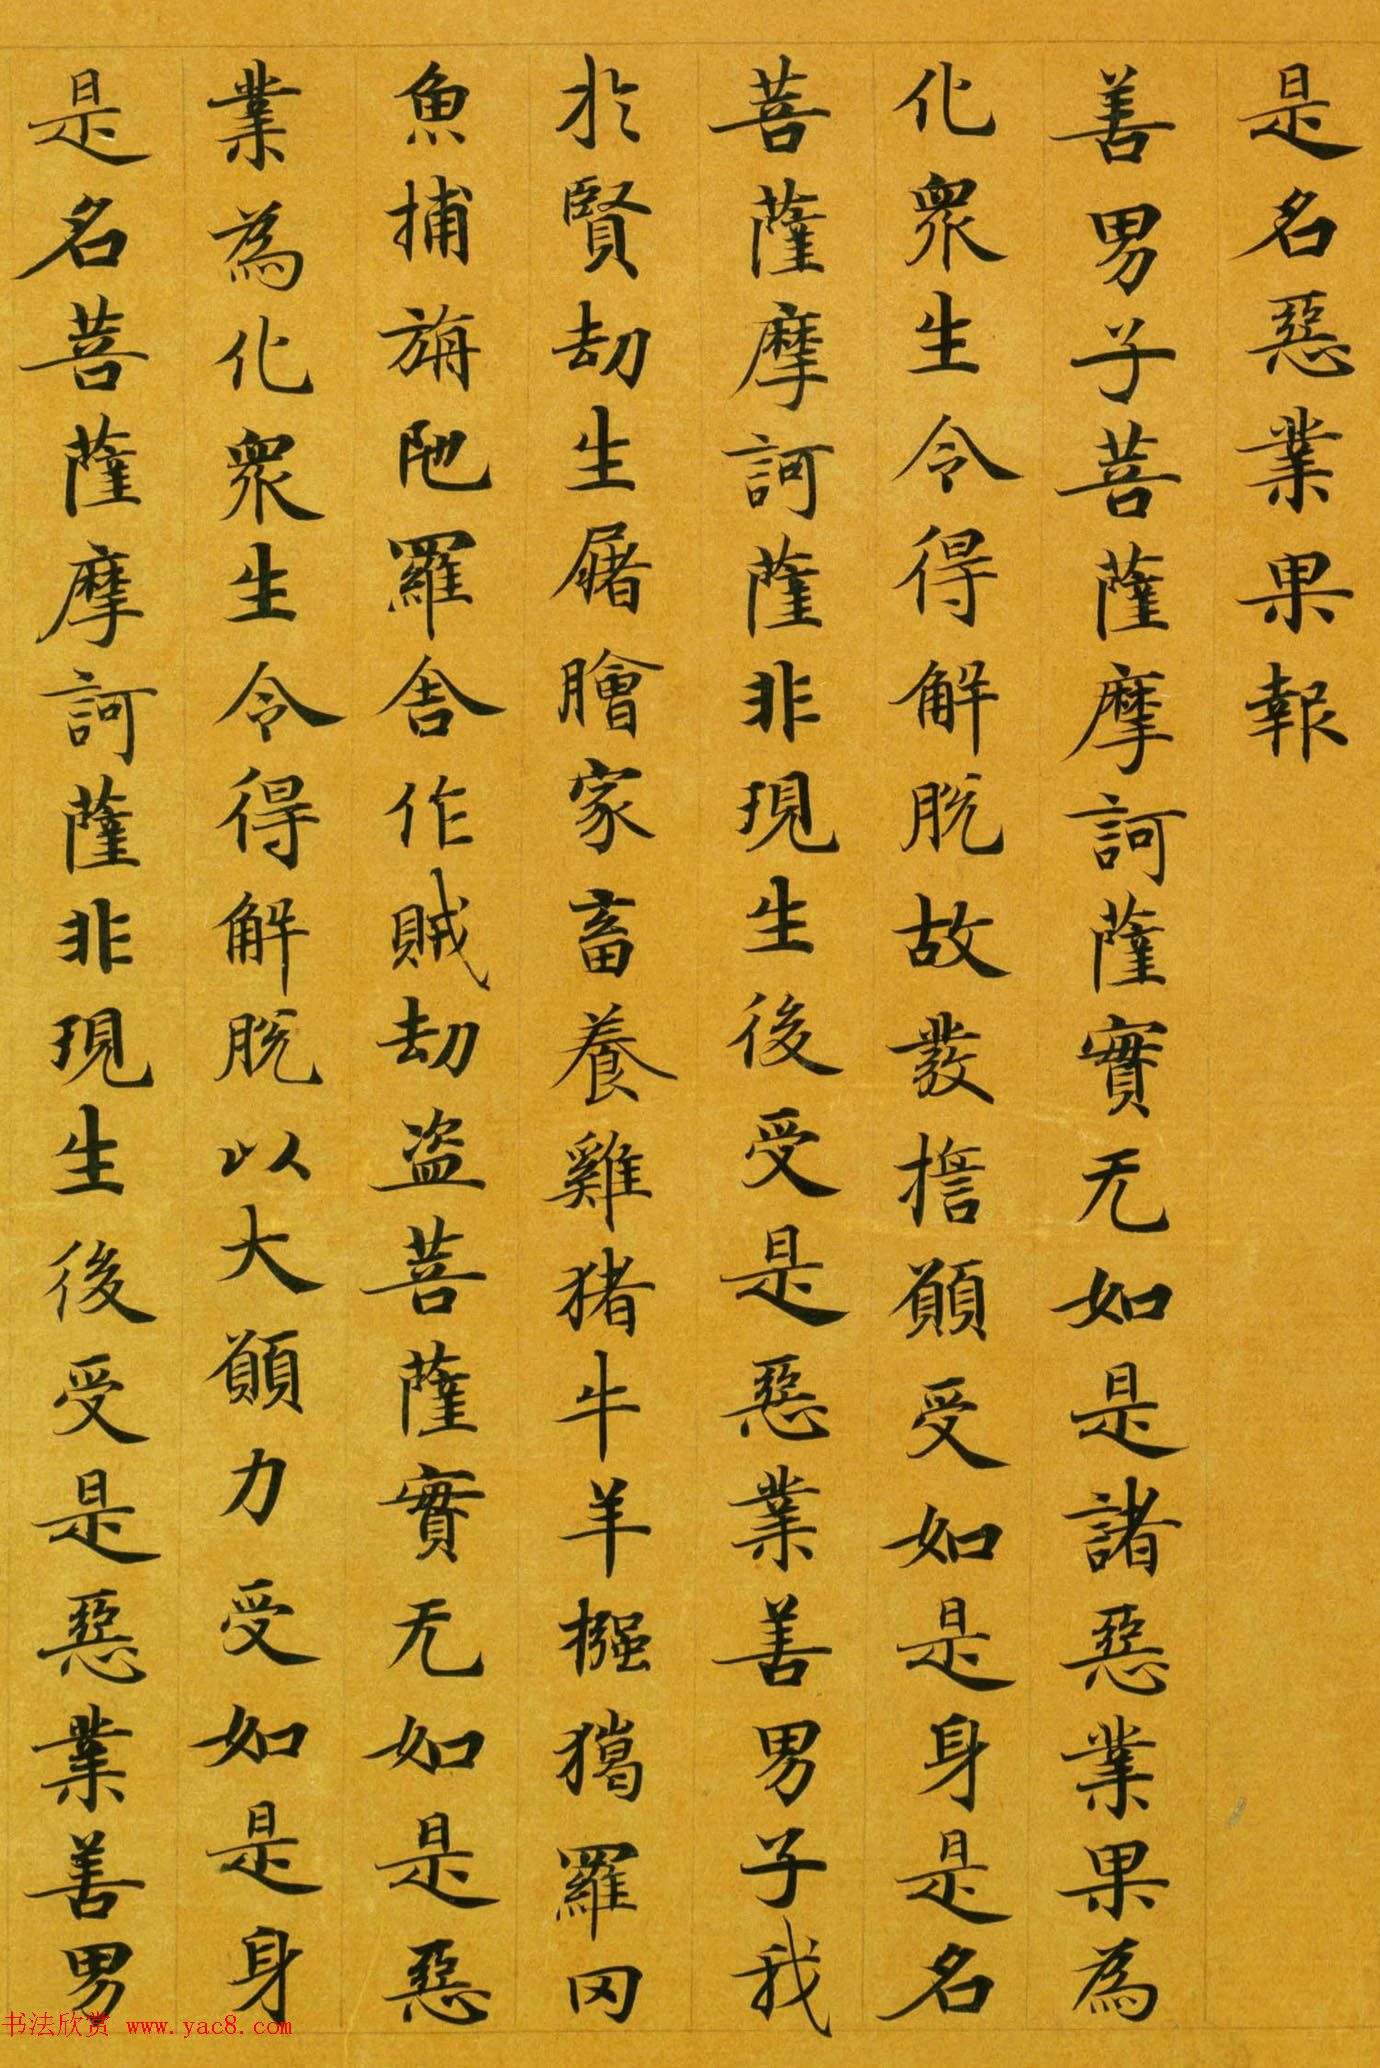 是名惡業果報
善男子菩薩摩訶薩實无如是諸惡業果為
化眾生令得解脫故發擔願受如是身是名
菩薩摩訶薩非現生後受是惡業善男子我
於賢劫生屠膾家畜養雞猪牛羊摾獦羅罔
魚捕旃陁羅舍作賊劫盗菩薩實无如是惡
業為化眾生令得解脫以大願力受如是身
是名菩薩摩訶薩非現生後受是惡業善男
书法欣赏 www.yac8.com